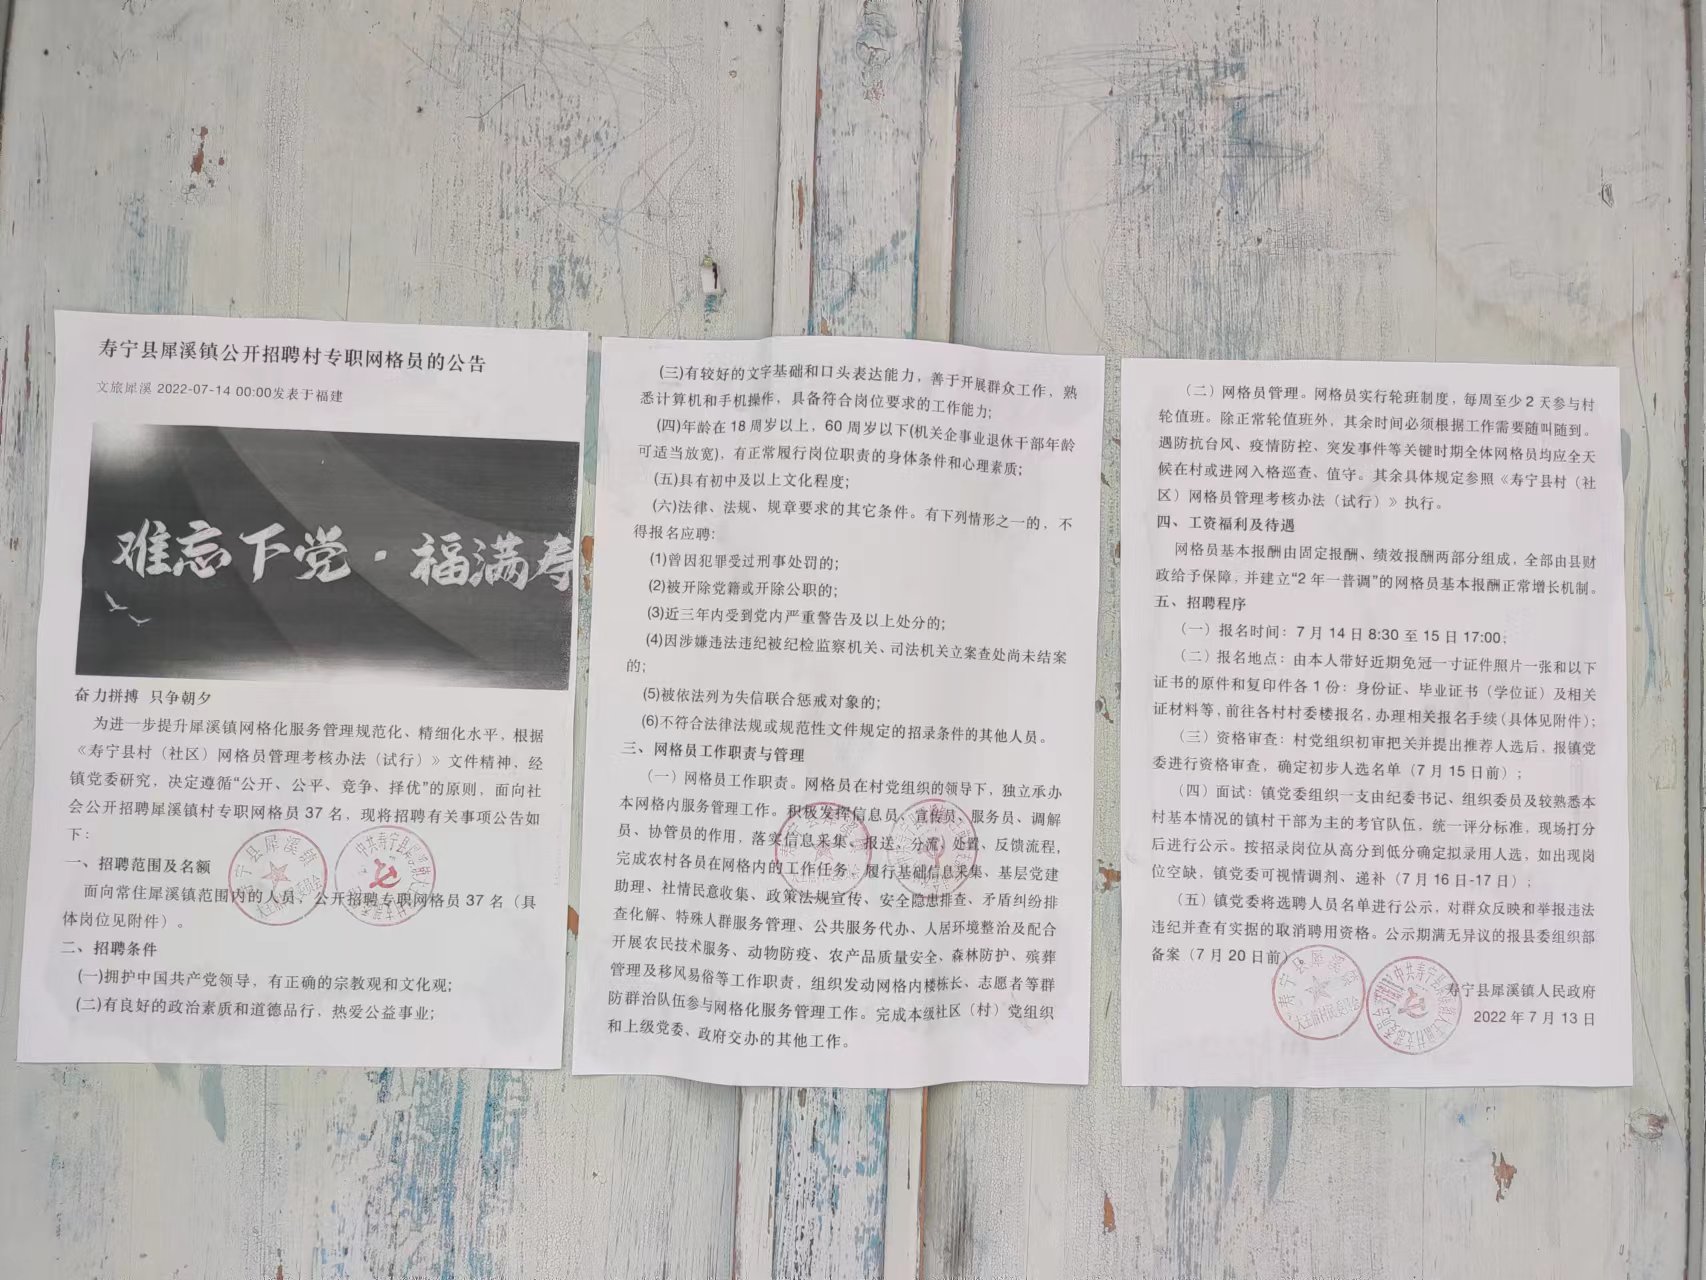 寿宁县犀溪镇公开招聘村专职网格员的公告
文旅犀溪 2022-07-14 00:00发表于福建
难忘下党·福满寿
奋力拼搏 只争朝夕
为进一步提升犀溪镇网格化服务管理规范化、精细化水平，根据
《寿宁县村（社区）网格员管理考核办法（试行）》文件精神、经
镇党委研究，决定遵循“公开、公平、竞争、择优”的原则，面向社
会公开招聘犀溪镇村专职网格员 37 名，现将招聘有关事项公告如
下：
一、招聘范围及名额
面向常住犀溪镇范围内的人员，公开招聘专职网格员 37 名（具
体岗位见附件）。
二、招聘条件
(一)拥护中国共产党领导，有正确的宗教观和文化观;
(二)有良好的政治素质和道德品行，热爱公益事业;
(三)有较好的文字基础和口头表达能力，善于开展群众工作，熟
悉计算机和手机操作，具备符合岗位要求的工作能力;
(四)年龄在 18 周岁以上，60 周岁以下(机关企事业退休干部年龄
可适当放宽)，有正常履行岗位职责的身体条件和心理素质;
(五)具有初中及以上文化程度;
(六)法律、法规、规章要求的其它条件。有下列情形之一的，不
得报名应聘:
(1)曾因犯罪受过刑事处罚的;
(2)被开除党籍或开除公职的;
(3)近三年内受到党内严重警告及以上处分的;
(4)因涉嫌违法违纪被纪检监察机关、司法机关立案查处尚未结案
的;
(5)被依法列为失信联合惩戒对象的;
(6)不符合法律法规或规范性文件规定的招录条件的其他人员。
三、网格员工作职责与管理
（一）网格员工作职责。网格员在村党组织的领导下，独立承办
本网格内服务管理工作。积极发挥信息员、宣传员、服务员、调解
员、协管员的作用，落实信息采集、报送、分流、处置、反馈流程，
完成农村各员在网格内的工作任务。履行基础信息采集、基层党建
助理、社情民意收集、政策法规宣传、安全隐患排查、矛盾纠纷排
查化解、特殊人群服务管理、公共服务代办、人居环境整治及配合
开展农民技术服务、动物防疫、农产品质量安全、森林防护、殡葬
管理及移风易俗等工作职责，组织发动网格内楼栋长、志愿者等群
防群治队伍参与网格化服务管理工作。完成本级社区（村）党组织
和上级党委、政府交办的其他工作。
（二）网格员管理。网格员实行轮班制度，每周至少 2 天参与村
轮值班。除正常轮值班外，其余时间必须根据工作需要随叫随到。
遇防抗台风、疫情防控、突发事件等关键时期全体网格员均应全天
候在村或进网入格巡查、值守。其余具体规定参照《寿宁县村（社
区）网格员管理考核办法（试行）》执行。
四、工资福利及待遇
网格员基本报酬由固定报酬、绩效报酬两部分组成，全部由县财
政给予保障，并建立“2 年一普调”的网格员基本报酬正常增长机制。
五、招聘程序
（一）报名时间：7 月 14 日 8:30 至 15 日 17:00;
（二）报名地点：由本人带好近期免冠一寸证件照片一张和以下
证书的原件和复印件各 1 份：身份证、毕业证书（学位证）及相关
证材料等，前往各村村委楼报名，办理相关报名手续（具体见附件）；
（三）资格审查：村党组织初审把关并提出推荐人选后，报镇党
委进行资格审查，确定初步人选名单（7 月 15 日前）；
（四）面试：镇党委组织一支由纪委书记、组织委员及较熟悉本
村基本情况的镇村干部为主的考官队伍，统一评分标准，现场打分
后进行公示。按招录岗位从高分到低分确定拟录用人选，如出现岗
位空缺，镇党委可视情调剂、递补（7 月 16 日-17 日）；
（五）镇党委将选聘人员名单进行公示，对群众反映和举报违法
违纪并查有实据的取消聘用资格。公示期满无异议的报县委组织部
备案（7 月 20 日前）
寿宁县犀溪镇人民政府
2022 年 7 月 13 日